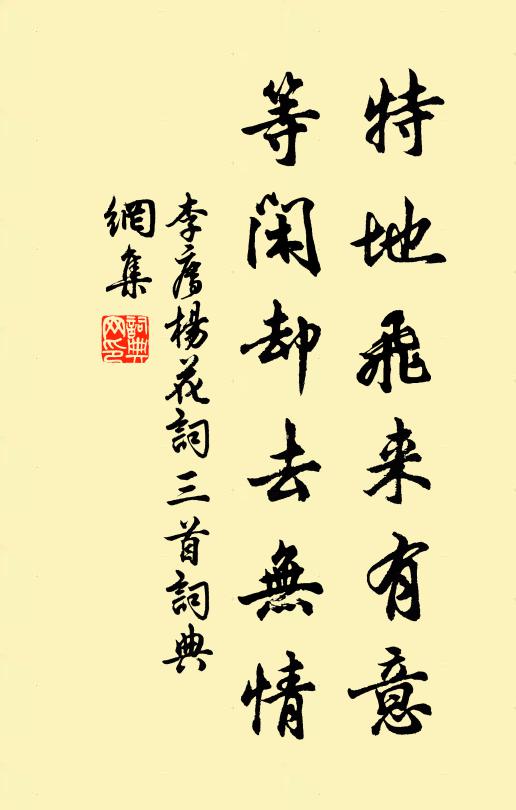 特地飛来有意
等閑却去無情
李廌楊花詞三首詞典
網集
詞典
网印